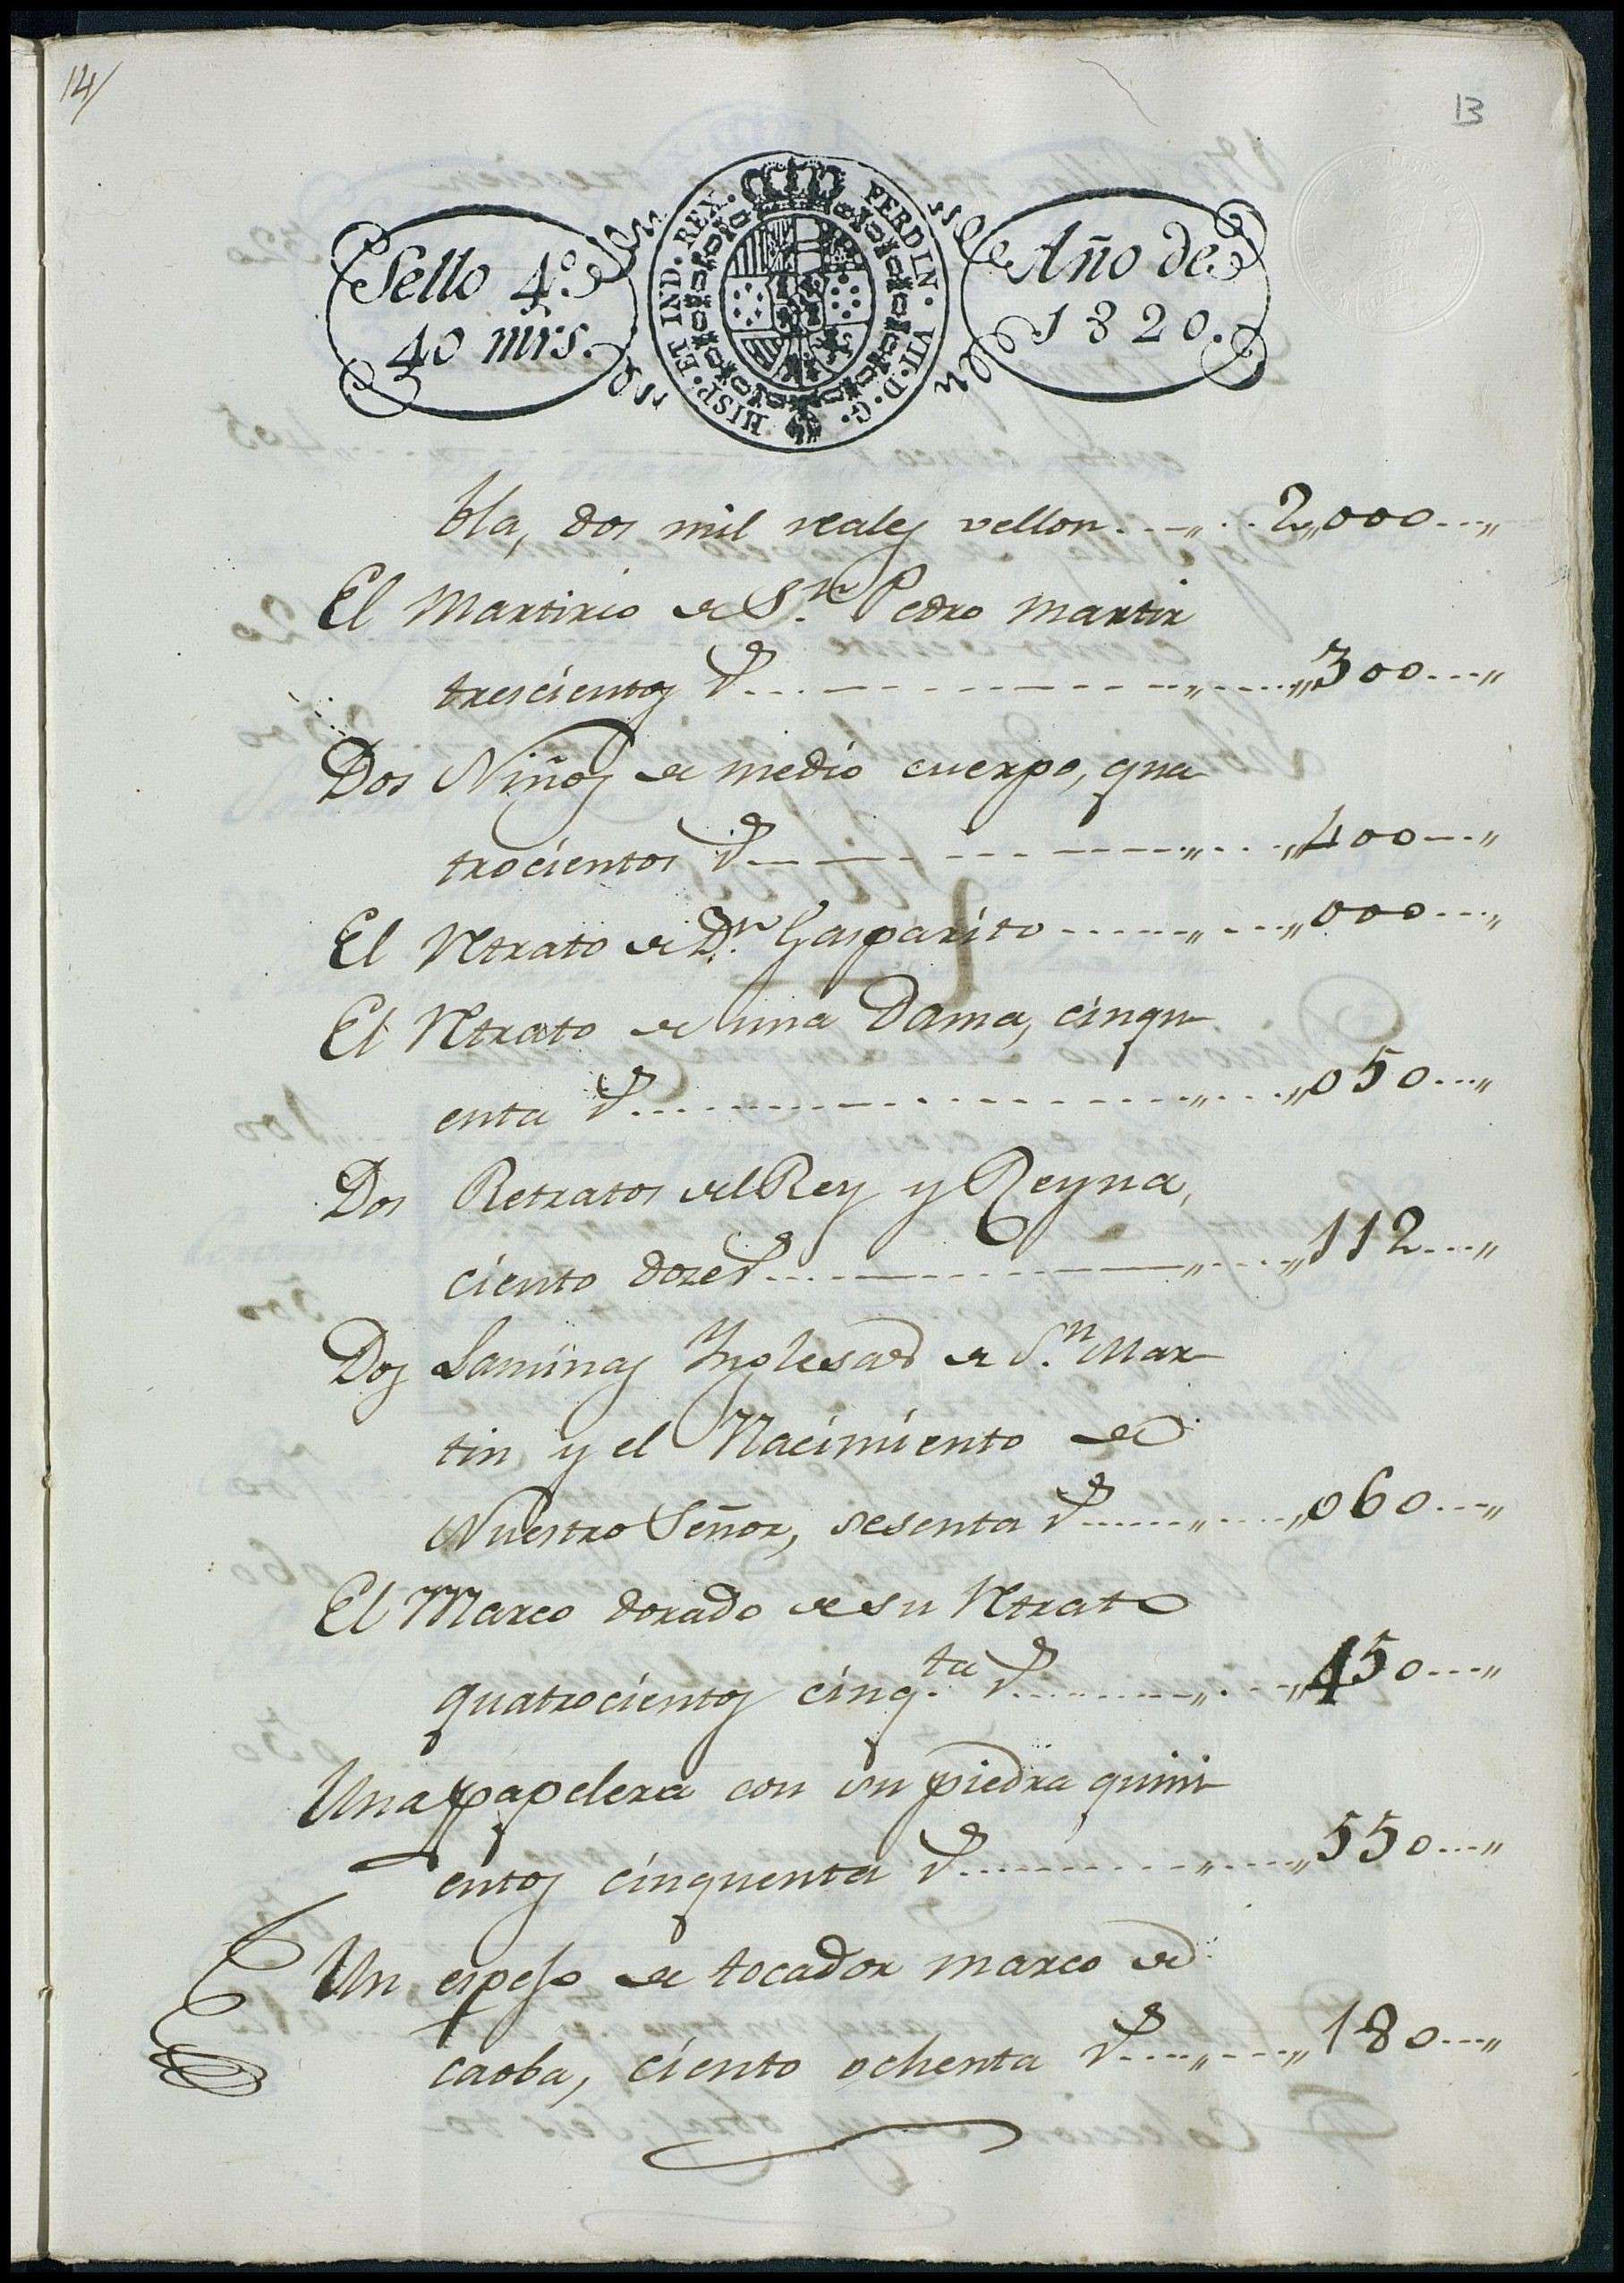 14/
13
Sello 4º
40 mrs.
HISP. ET IND. REX. FERDIN. VII. D. G.
Año de
1820.
bla, dos mil reales vellon 2,,000
El Martirio de Sn. Pedro Martir
trescientos rs 300
Dos Niños de medio cuerpo, qua
trocientos rs 400
El Rtrato de Dn. Gasparito 000
El Rtrato de una Dama, cinqu
enta rs 050
Dos Retratos del Rey y Reyna,
ciento doze rs 112
Dos Laminas Ynglesas de Sn. Mar
tin y el Nacimiento de
Nuestro Señor, sesenta rs 060
El Marco dorado de su Rtrato
quatrocientos cinq.ta rs 450
Una papelera con su piedra quini
entos cinquenta rs 550
Un espejo de tocador marco de
caoba, ciento ochenta rs 180